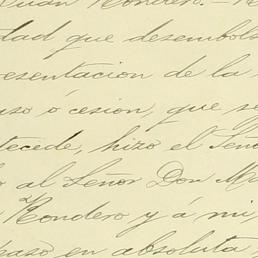 Juan Rondero.-
dad que desembols
resentacion de la
aso ó cesion, que se
tecede, hizo el Seño
o al Señor Don M
Rondero y á mi
paso en absoluta